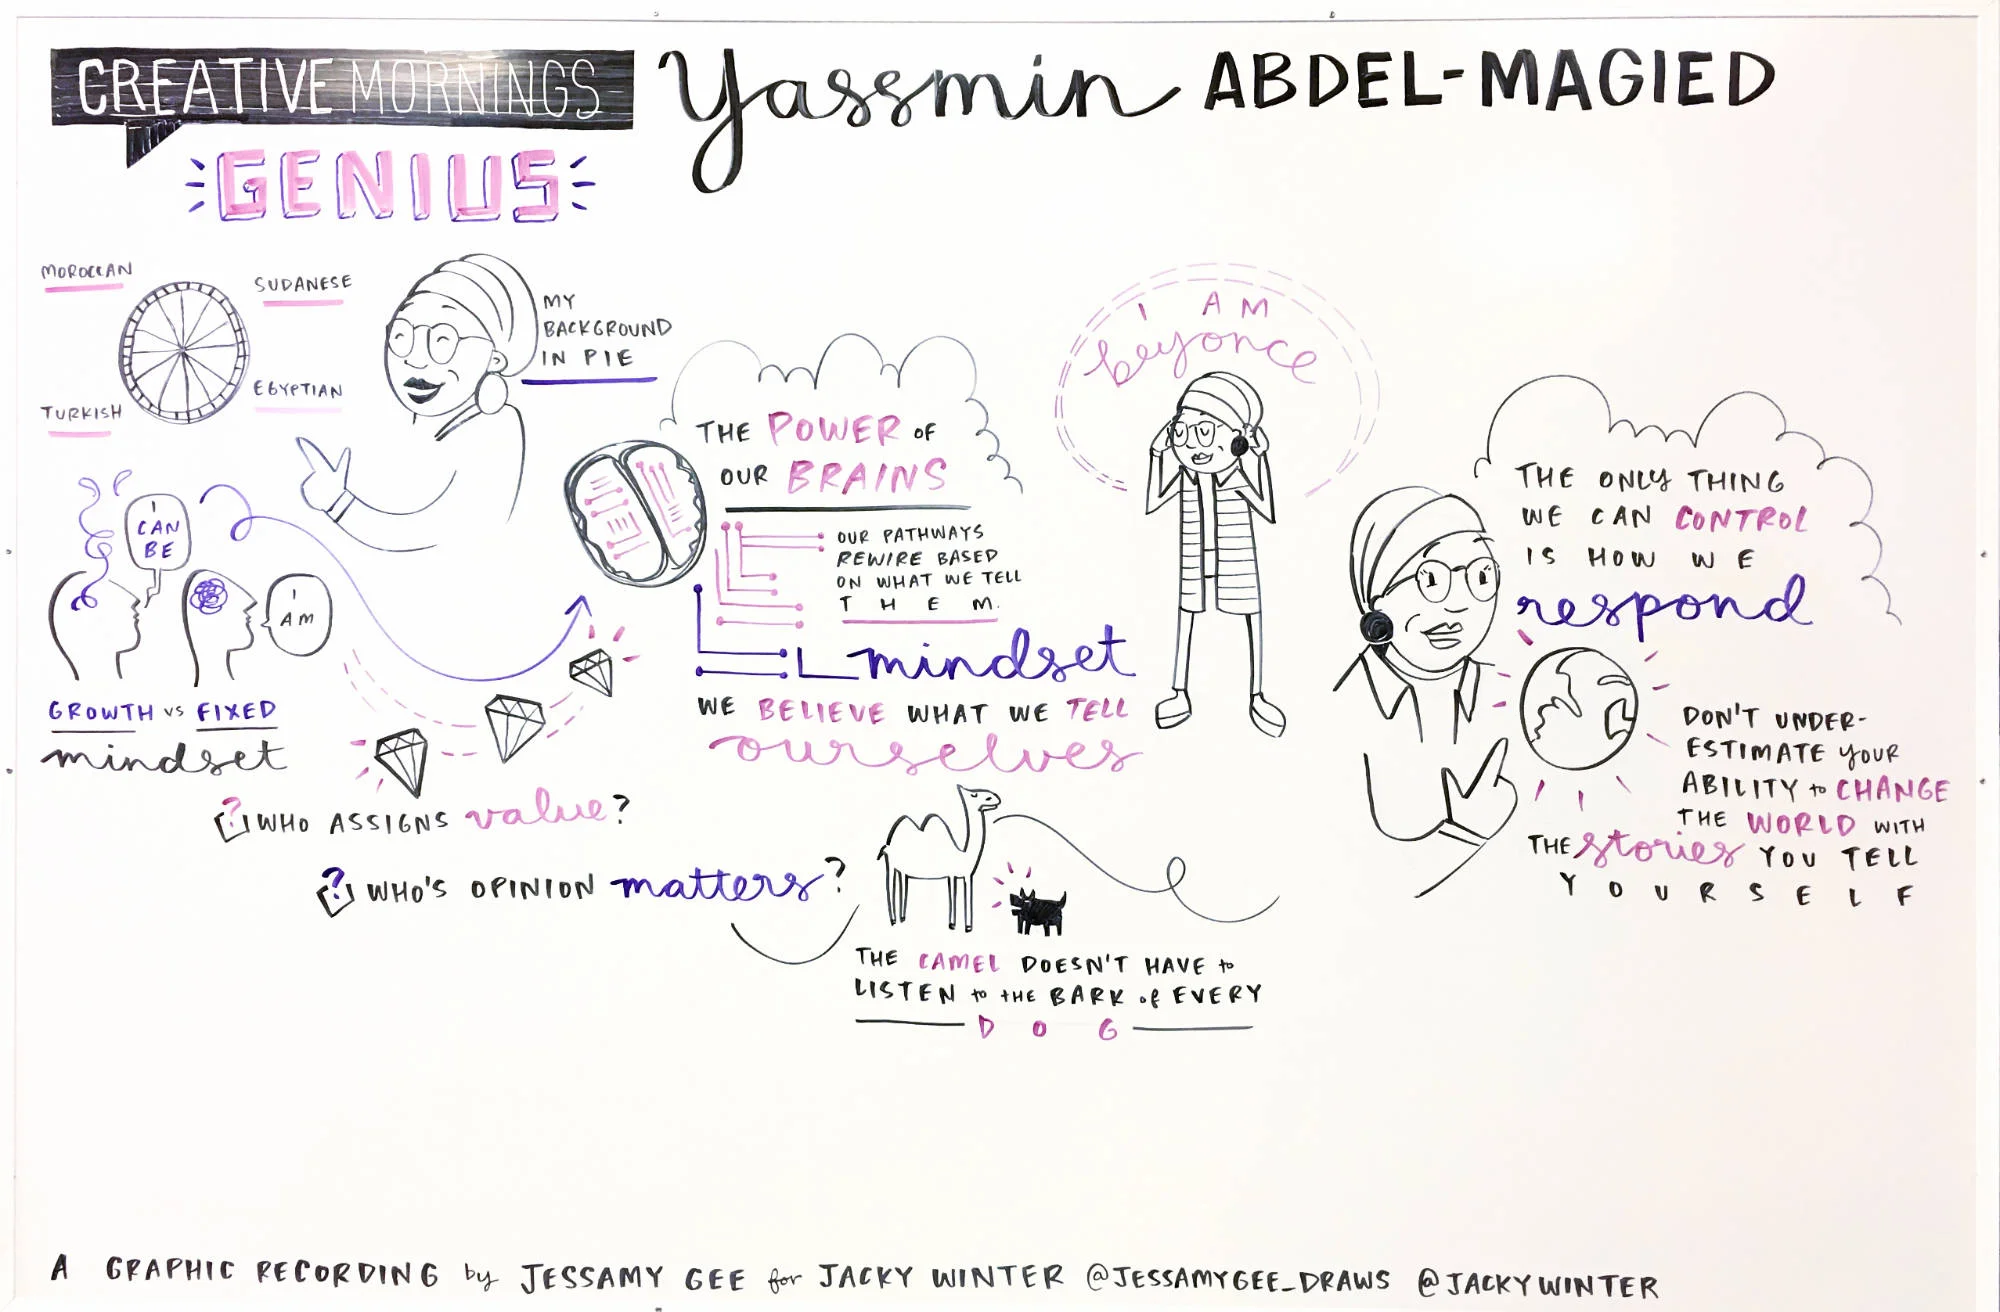 CREATIVEMORNINGS
Yassmin ABDEL-MAGIED
GENIUS
MOROCCAN
SUDANESE
TURKISH
EGYPTIAN
MY
BACKGROUND
IN PIE
I
CAN
BE
I
AM
GROWTH vs FIXED
mindset
? WHO ASSIGNS value?
? WHO'S OPINION matters?
THE POWER OF
OUR BRAINS
OUR PATHWAYS
REWIRE BASED
ON WHAT WE TELL
THEM.
mindset
WE BELIEVE WHAT WE TELL
ourselves
THE CAMEL DOESN'T HAVE to
LISTEN to THE BARK of EVERY
DOG
I AM
beyonce
THE ONLY THING
WE CAN CONTROL
IS HOW WE
respond
DON'T UNDER-
ESTIMATE YOUR
ABILITY to CHANGE
THE WORLD WITH
THE stories YOU TELL
YOURSELF
A GRAPHIC RECORDING by JESSAMY GEE for JACKY WINTER @JESSAMYGEE_DRAWS @JACKYWINTER